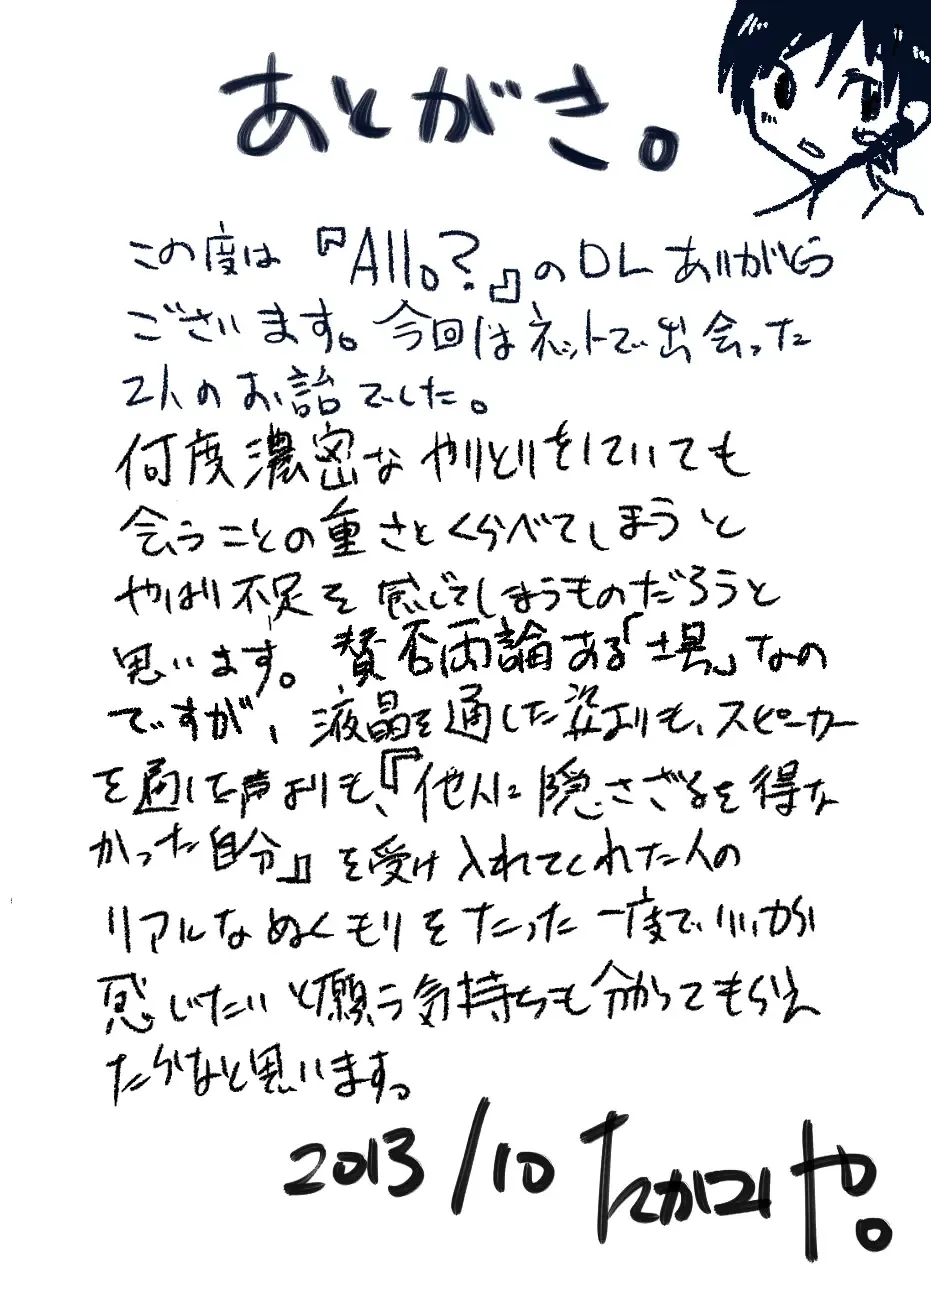 あとがき。
この度は『Allo?』のDLありがとう
ございます。今回はネットで出会った
2人のお話でした。
何度濃密なやりとりをしていても
会うことの重さとくらべてしまうと
やはり不足を感じてしまうものだろうと
思います。賛否両論ある「場」なの
ですが、液晶を通した姿よりも、スピーカー
を通した声よりも、『他人に隠さざるを得な
かった自分』を受け入れてくれた人の
リアルなぬくもりをたった一度でいいから
感じたいと願う気持ちも分かってもらえ
たらなと思います。
2013/10 たかコ